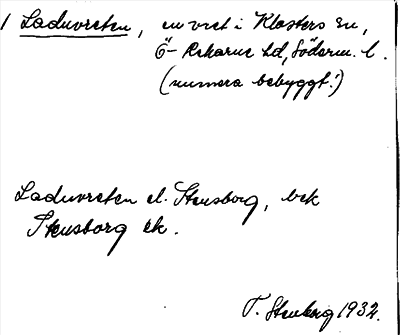 1 Laduvreten, en vret i Klosters sn,
Ö- Rekarne hd, Söderm. l.
(numera bebyggt!)
Laduvreten el. Stensborg, bek
Stensborg ek.
T. Stenberg 1932.